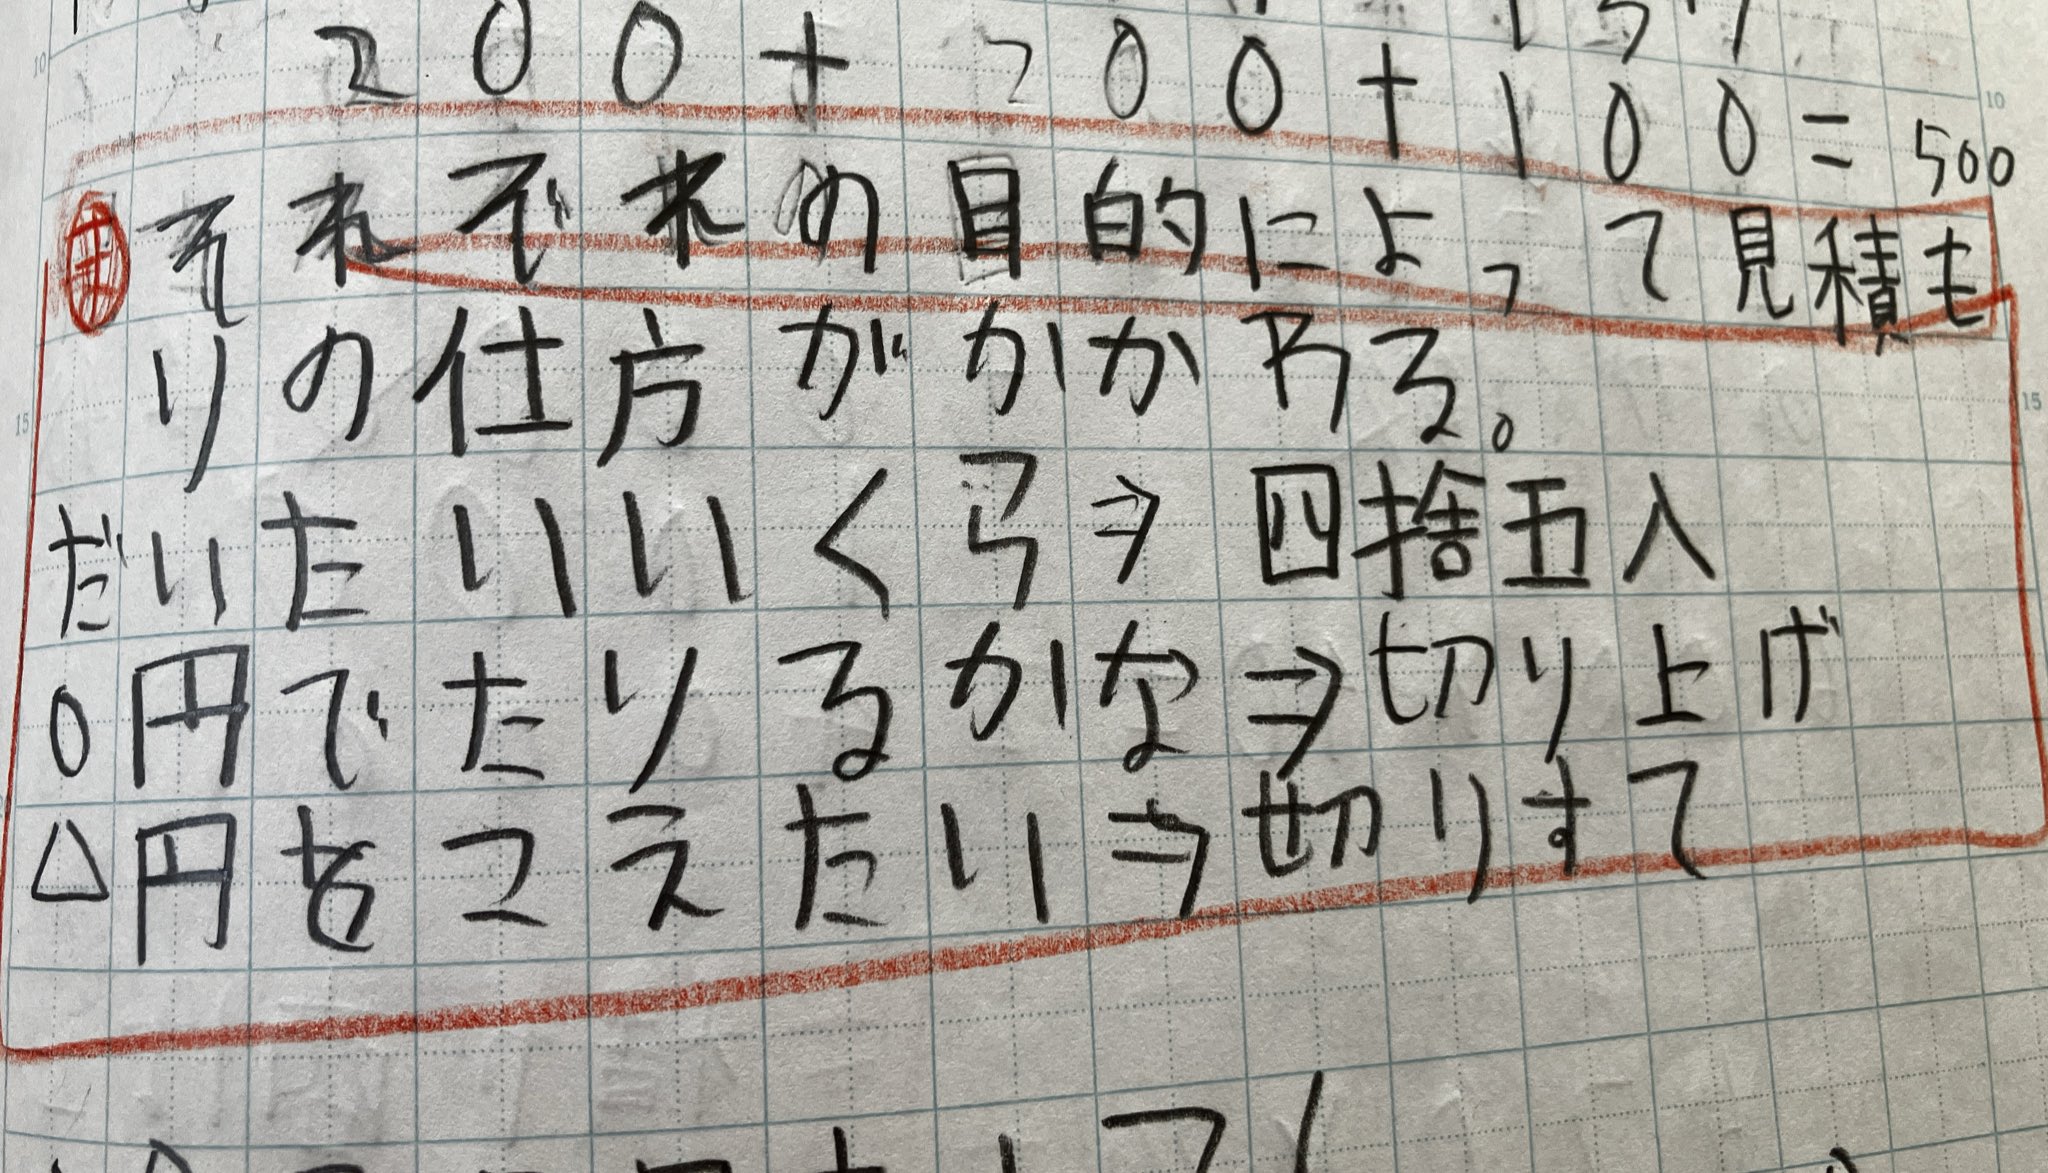 200+200+100=500
㋮それぞれの目的によって見積も
りの仕方がかかわる。
だいたいいくら⇒四捨五入
○円でたりるかな⇒切り上げ
△円をこえたい⇒切りすて